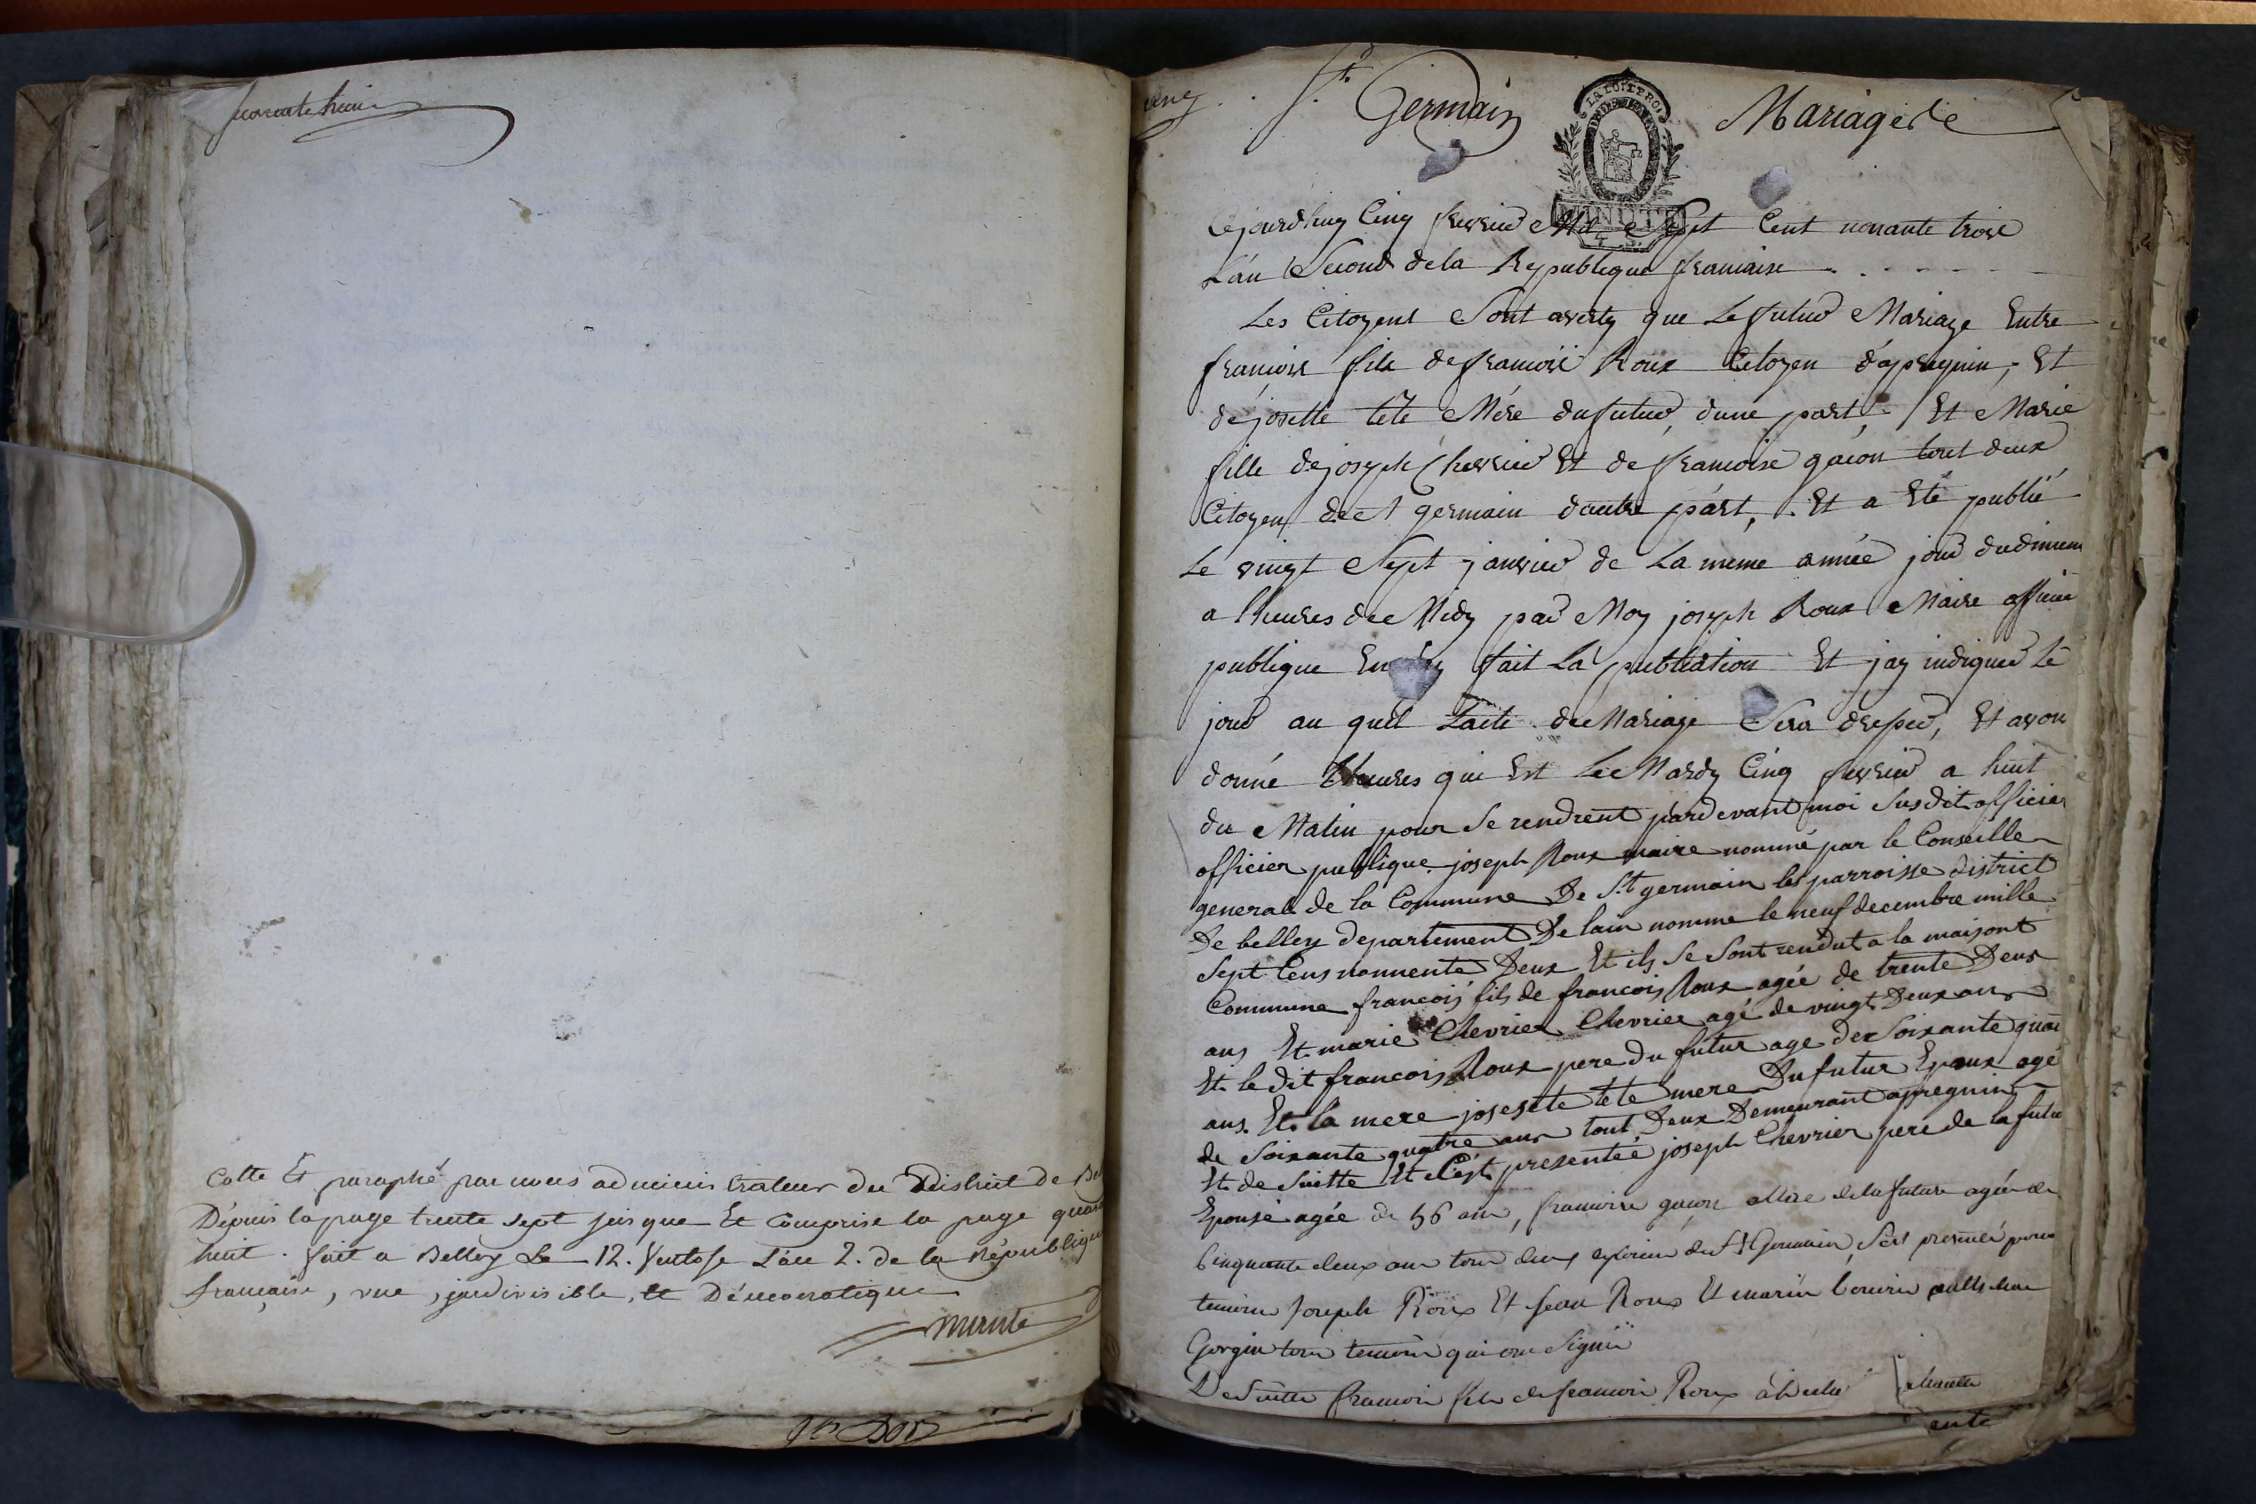 quarante huit
Cotté Et paraphé par nous administrateur du District de Bel
Dépuis la page trente sept jusque Et Comprise la page quara
huit. fait a Belley Le 12. Ventose L'an 2. de la Républiqu
française, une, jndivisible, et Démocratique
St. Germain Mariage de
LA LOI ET LE ROI
MINUTE
4 S.
Cejourdhuy Cinq fevrier Mil Sept Cent nonante trois
L'an Second dela Republique francaise
Les Citoyens Sont averty que Le futur Mariage Entre
francois fils de francois Roux Citoyen d'apregnin, Et
de josette tete Mére du futur, dune part, Et Marie
fille de joseph Chevrier Et de francoise gacon tout deux
Citoyen de St germain dautre part, Et a Eté publié
Le vingt Sept janvier de La meme année jour du dimen
a lheures de Midy par Moy joseph Roux Maire officier
publique fait La publication Et jay indiquer Le
jour au quel L'acte de Mariage Sera , Et avon
donné lheures qui Est Le Mardy Cinq fevrier a huit
du Matin pour Se rendrent pardevant moi Susdit officier
officier publique joseph Roux maire nommé par le Conseille
general de la Commune De St. germain les parroisse district
De belley departement De lain nomme le neuf decembre mille
Sept Cens nonnente Deux Et ils Se Sont rendut a la maisont
Commune francois fils de francois Roux agée de trente Deux
ans Et marie Chevrier Chevrier agé de vingt Deux ans
Et le dit francois Roux pere Du futur age der Soixante quat
ans. Et la mere josesete tete mere Du futur Epoux agé
de Soixante quatre ans tout Deux Demeurant apregnin
Et de Suitte Et C'est presentée joseph Chevrier pere de la futu
Epouse agée de 56 ans, francoise gacon Mere dela future agée de
Cinquante deux ans tous deux de St Germain, Set presenté pour
temoin Joseph Roux Et Jean Roux Et
Gorgin tous temoin qui ont Signé
De Suitte francois fils de francois Roux